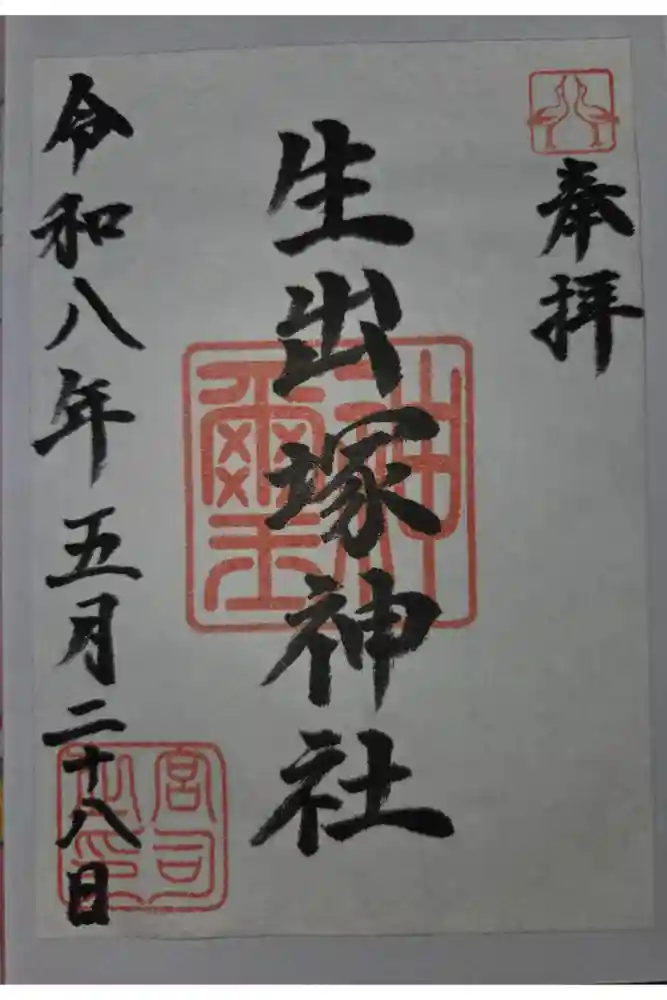 奉拝
生出塚神社
神璽
令和八年五月二十八日
宮司之印